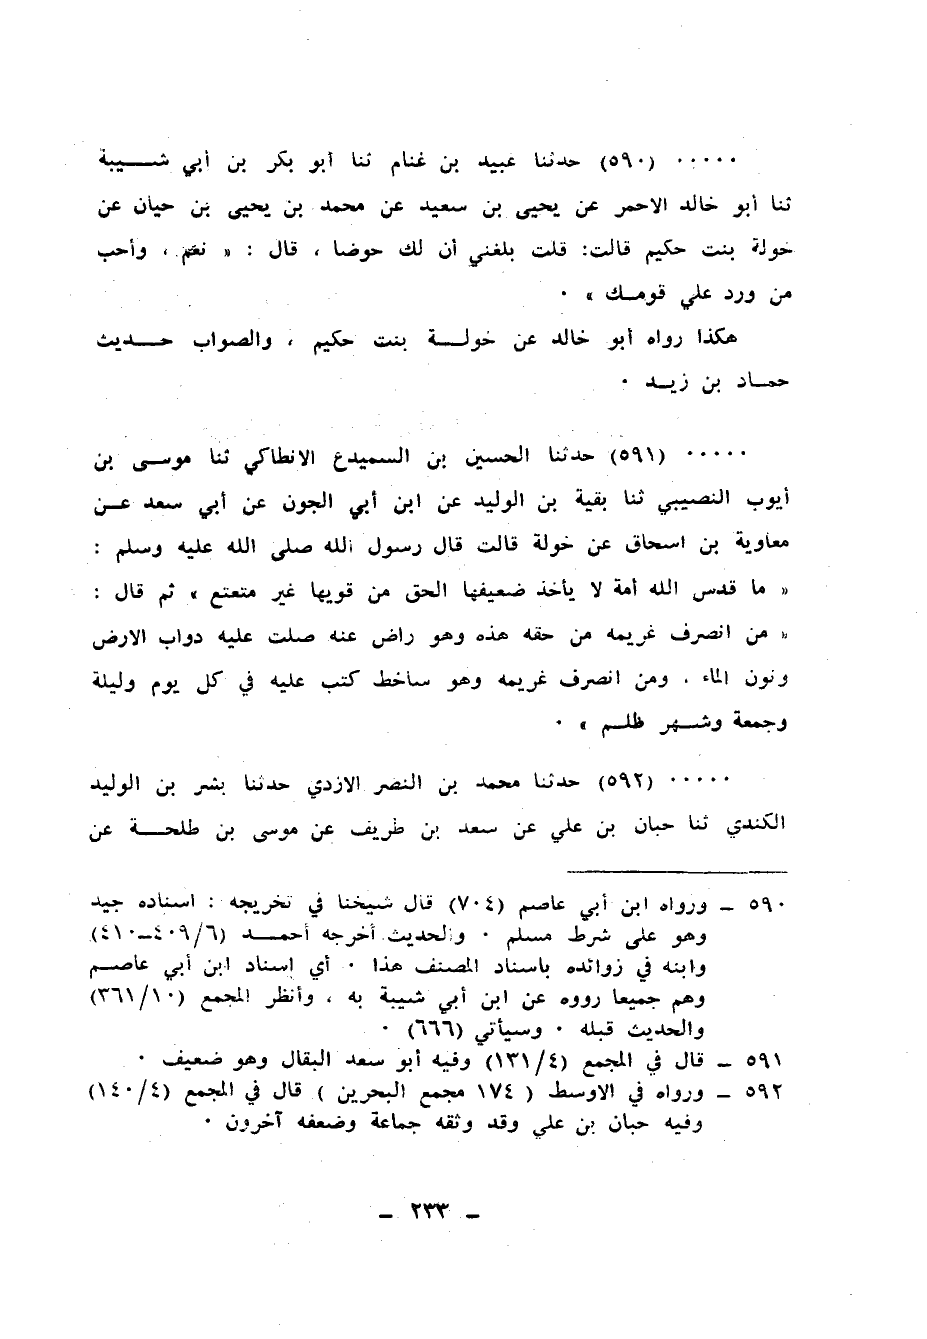 ٠٠٠٠٠ (٥٩٠) حدثنا عبيد بن غنام ثنا أبو بكر بن أبي شـــيبة
ثنا أبو خالد الاحمر عن يحيى بن سعيد عن محمد بن يحيى بن حيان عن
خولة بنت حكيم قالت: قلت بلغني أن لك حوضا ، قال : « نعم ، وأحب
من ورد علي قومــك » ٠
هكذا رواه أبو خالد عن خولــة بنت حكيم ، والصواب حــديث
حمــاد بن زيــد ٠
٠٠٠٠٠ (٥٩١) حدثنا الحسين بن السميدع الانطاكي ثنا موســى بن
أيوب النصيبي ثنا بقية بن الوليد عن ابن أبي الجون عن أبي سعد عــن
معاوية بن اسحاق عن خولة قالت قال رسول الله صلى الله عليه وسلم :
« ما قدس الله أمة لا يأخذ ضعيفها الحق من قويها غير متعتع » ثم قال :
« من انصرف غريمه من حقه هذه وهو راض عنه صلت عليه دواب الارض
ونون الماء ، ومن انصرف غريمه وهو ساخط كتب عليه في كل يوم وليلة
وجمعة وشــهر ظلــم » ٠
٠٠٠٠٠ (٥٩٢) حدثنا محمد بن النصر الازدي حدثنا بشر بن الوليد
الكندي ثنا حبان بن علي عن سعد بن طريف عن موسى بن طلحــة عن
٥٩٠ ــ ورواه ابن أبي عاصم (٧٠٤) قال شيخنا في تخريجه : اسناده جيد
وهو على شرط مسلم ٠ والحديث أخرجه أحمــد (٤٠٩/٦ــ٤١٠)
وابنه في زوائده باسناد المصنف هذا ٠ أي اسناد ابن أبي عاصــم
وهم جميعا رووه عن ابن أبي شيبة به ، وأنظر المجمع (٣٦١/١٠)
والحديث قبله ٠ وسيأتي (٦٦٦) ٠
٥٩١ ــ قال في المجمع (١٣١/٤) وفيه أبو سعد البقال وهو ضعيف ٠
٥٩٢ ــ ورواه في الاوسط ( ١٧٤ مجمع البحرين ) قال في المجمع (١٤٠/٤)
وفيه حبان بن علي وقد وثقه جماعة وضعفه آخرون ٠
ــ ٢٣٣ ــ